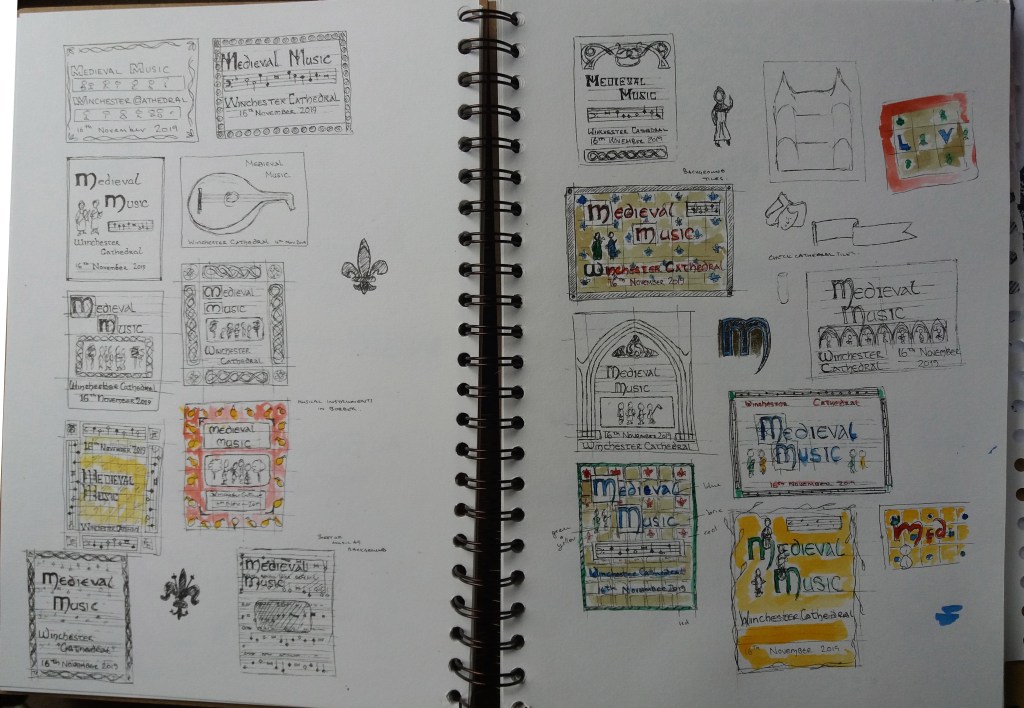 MEDIEVAL MUSIC
WINCHESTER CATHEDRAL
16TH NOVEMBER 2019
MEDIEVAL MUSIC
WINCHESTER CATHEDRAL
16TH NOVEMBER 2019
MEDIEVAL
MUSIC
WINCHESTER
CATHEDRAL
16TH NOVEMBER 2019
MEDIEVAL
MUSIC
WINCHESTER CATHEDRAL
MEDIEVAL
MUSIC
WINCHESTER CATHEDRAL
16TH NOVEMBER 2019
MEDIEVAL
MUSIC
WINCHESTER
CATHEDRAL
MUSICAL INSTRUMENTS
IN BORDER
16TH NOVEMBER 2019
MEDIEVAL
MUSIC
MEDIEVAL
MUSIC
MEDIEVAL
MUSIC
WINCHESTER
CATHEDRAL
16TH NOVEMBER 2019
SHEET OF
MUSIC AS
BACKGROUND
MEDIEVAL
MUSIC
MEDIEVAL
MUSIC
WINCHESTER
CATHEDRAL
16TH NOVEMBER 2019
LIV
BACKGROUND
TILES
MEDIEVAL
MUSIC
WINCHESTER CATHEDRAL
16TH NOVEMBER 2019
CHECK CATHEDRAL TILES
MEDIEVAL
MUSIC
WINCHESTER
CATHEDRAL
16TH NOVEMBER
2019
M
MEDIEVAL
MUSIC
16TH NOVEMBER 2019
WINCHESTER CATHEDRAL
WINCHESTER CATHEDRAL
MEDIEVAL
MUSIC
16TH NOVEMBER 2019
MEDIEVAL
MUSIC
WINCHESTER CATHEDRAL
16TH NOVEMBER 2019
blue
red
MEDIEVAL
MUSIC
WINCHESTER CATHEDRAL
16TH NOVEMBER 2019
MED